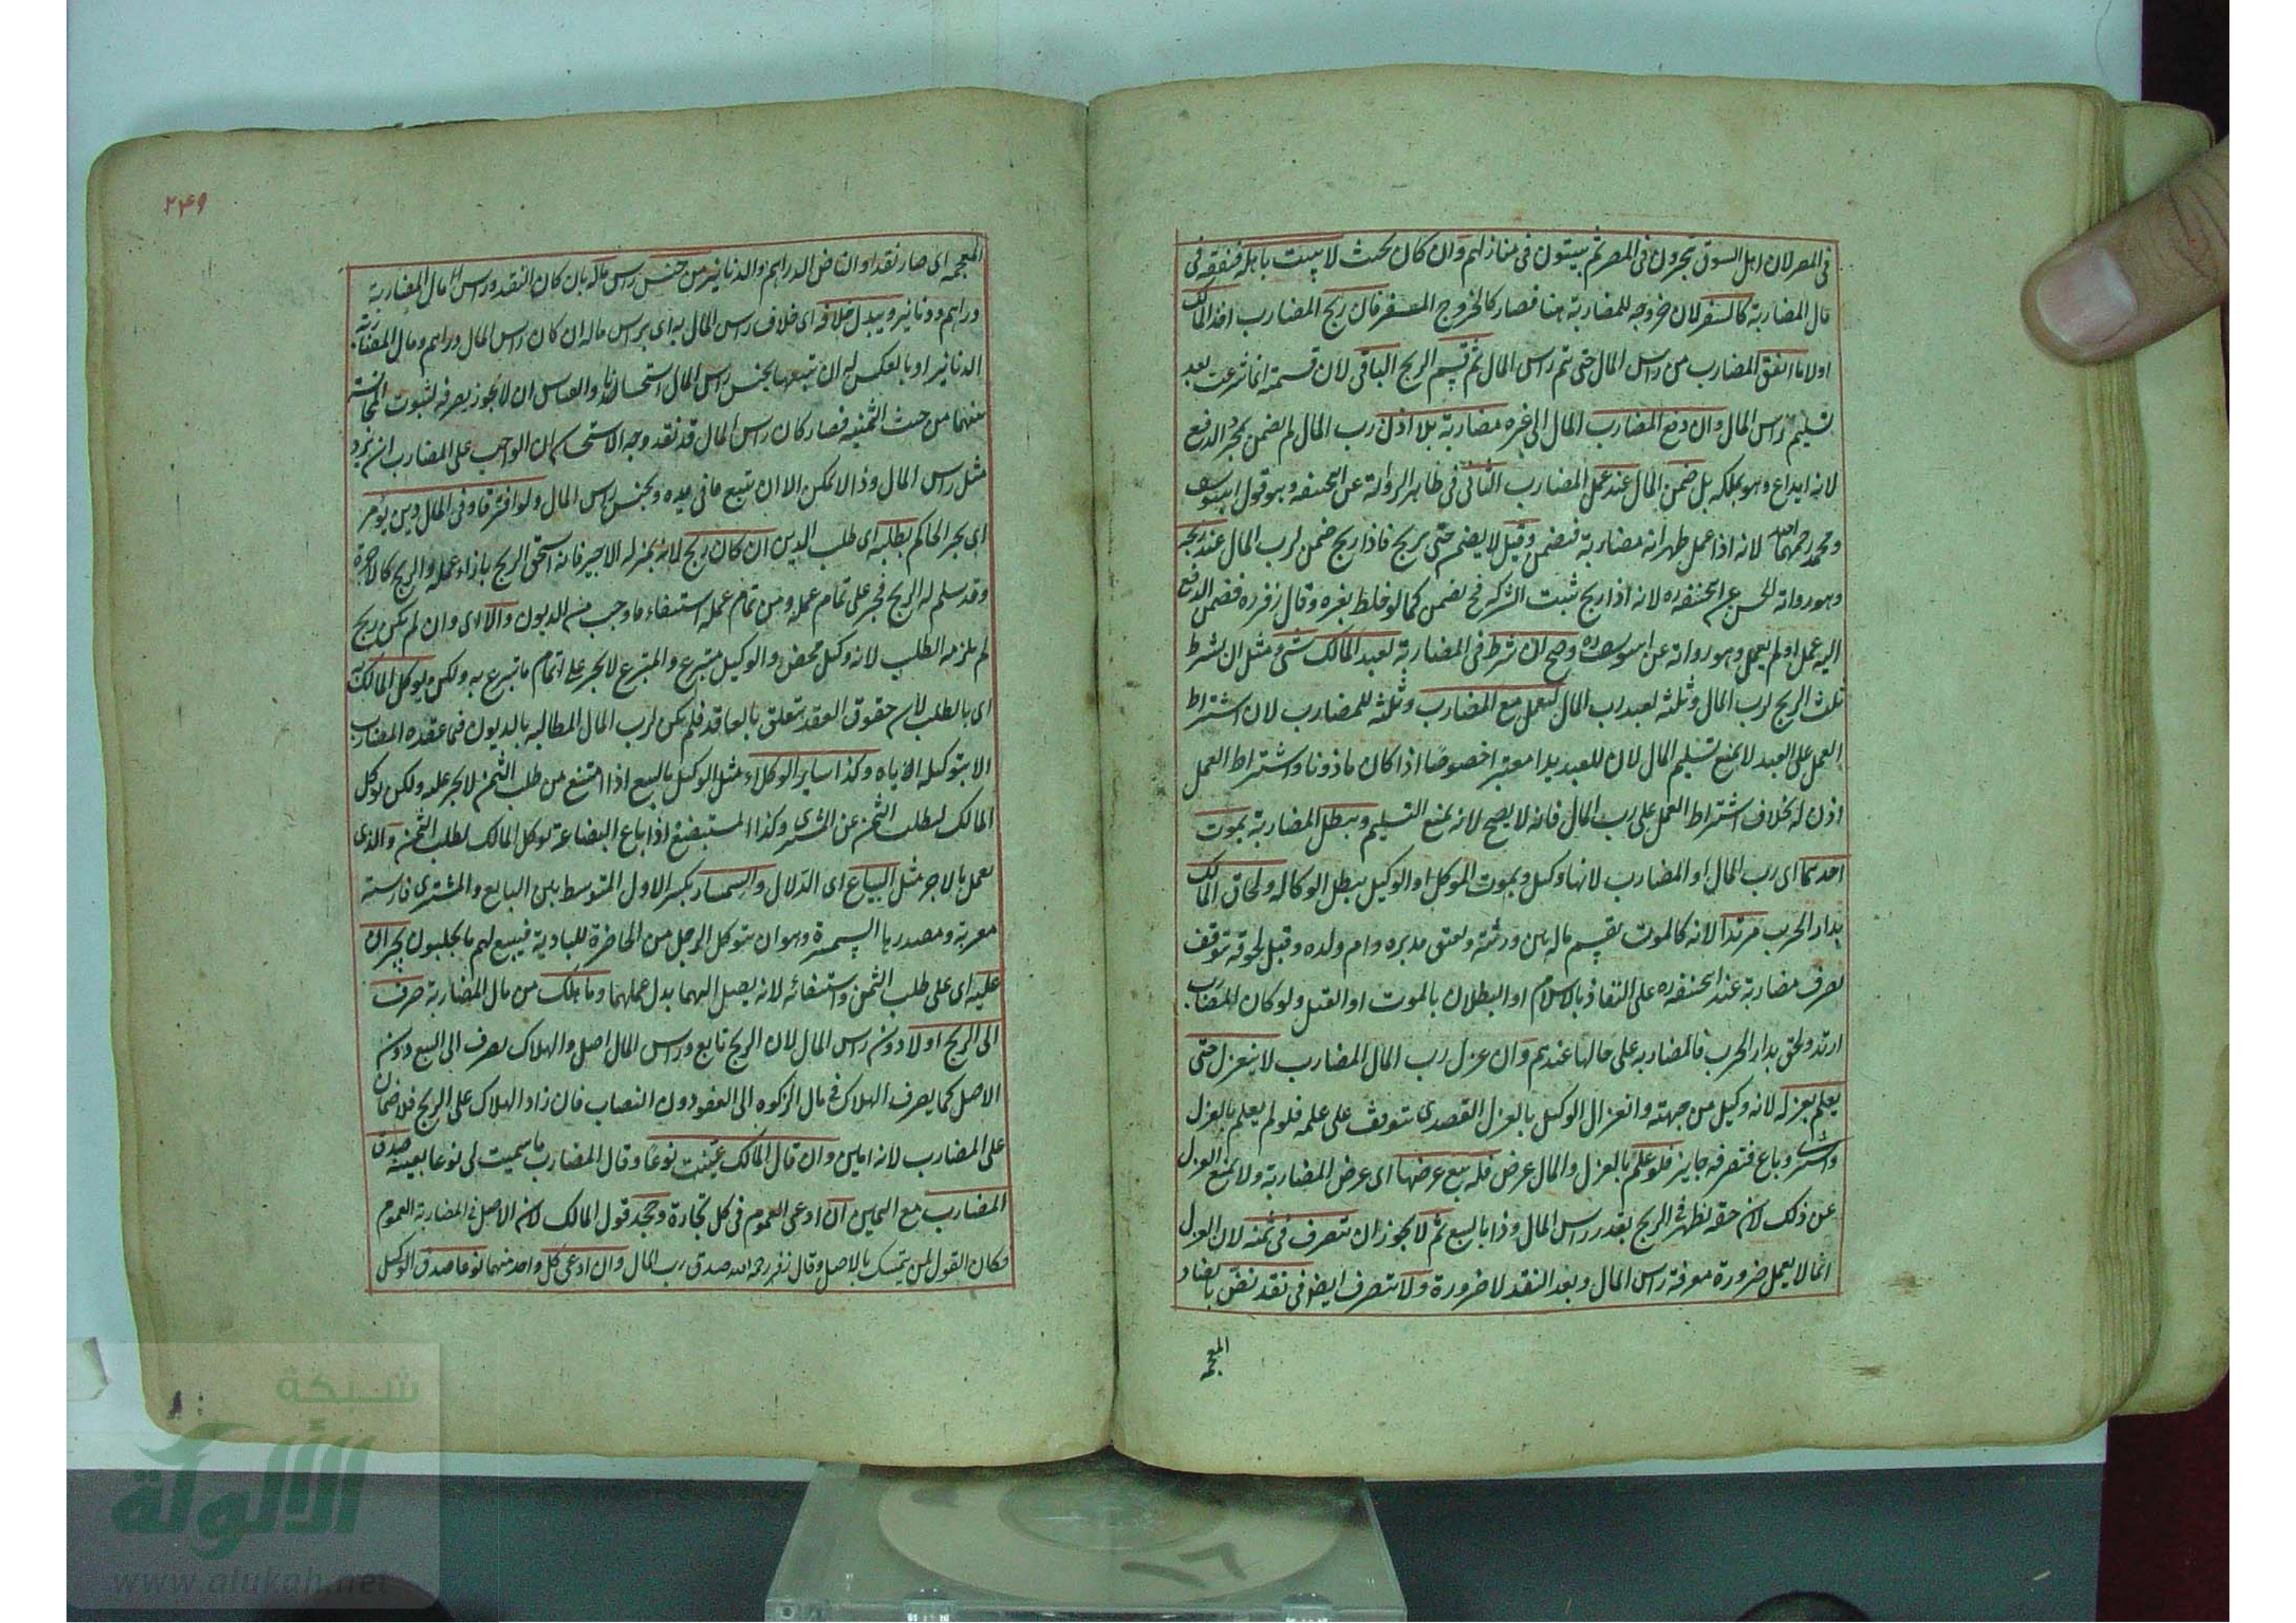 فى المصر لان اهل السوق يتجرون فى المصر ثم يبيتون فى منازلهم وان كان بحيث لا يبيت باهله فنفقته فى
مال المضاربة كالسفر لان خروجه للمضاربة هنا فصار كالخروج للسفر فان ربح المضارب اخذ المالك
اولا ما انفق المضارب من راس المال حتى تم راس المال ثم قسم الربح الباقى لان قسمته انما شرعت بعد
تسليم راس المال وان دفع المضارب المال الى غيره مضاربة بلا اذن رب المال لم يضمن بمجرد الدفع
لانه ايداع وهو يملكه بل ضمن المال عند عمل المضارب الثانى فى ظاهر الرواية عن ابيحنيفه وهو قول ابييوسف
ومحمد رحمهما الله لانه اذا عمل ظهر انه مضاربة فيضمن وقيل لا يضمن حتى يربح فاذا ربح ضمن لرب المال عند ربحه
وهو رواية الحسن عن ابيحنيفه ره لانه اذا ربح ثبت الشركة فح يضمن كما لو خلط بغيره وقال زفر ره فضمن الدفع
اليه عمل او لم يعمل وهو رواية عن ابييوسف ره وصح ان شرط فى المضاربة لعبد المالك شئ مثل ان يشرط
ثلث الربح لرب المال وثلثه لعبد رب المال ليعمل مع المضارب وثلثه للمضارب لان اشتراط
العمل على العبد لا يمنع تسليم المال لان للعبد يدا معتبرا خصوصا اذا كان ماذونا واشتراط العمل
اذن له بخلاف اشتراط العمل على رب المال فانه لا يصح لانه يمنع التسليم ويبطل المضاربة بموت
احدهما اى رب المال او المضارب لانها وكيل وبموت الموكل او الوكيل يبطل الوكالة ولحاق المالك
بدار الحرب مرتدا لانه كالموت يقسم ماله بين ورثته ويعتق مدبره وام ولده وقبل لحوقه توقف
تصرف مضاربة عند ابيحنيفه ره على النفاذ بالاسلام او البطلان بالموت او القتل ولو كان المضارب
ارتد ولحق بدار الحرب فالمضاربه على حالها عندهم وان عزل رب المال المضارب لا ينعزل حتى
يعلم بعزله لانه وكيل من جهته وانعزال الوكيل بالعزل القصدى يتوقف على علمه فلو لم يعلم بالعزل
واشترى وباع فتصرفه جايز فلو علم بالعزل والمال عرض فله بيع عرضها اى عرض المضاربة ولا يمنع العزل
عن ذلك لان حقه يظهر فى الربح بقدر راس المال وذا بالبيع ثم لا يجوز ان يتصرف فى ثمنه لان العزل
انما لا يعمل ضرورة معرفة راس المال وبعد النقد لا ضرورة ولا يتصرف ايضا فى نقد نض بالضاد
المعجمه
٢٤٩
المعجمه اى صار نقدا وان نض الدراهم والدنانير من جنس راس ماله بان كان النقد وراس المال المضاربة
دراهم ودنانير ويبدل خلافه اى خلاف راس المال به اى براس ماله ان كان راس المال دراهم ومال المضاربة
الدنانير او بالعكس له ان يبيعها بجنس راس المال استحسانا والقياس ان لا يجوز تصرفه لثبوت المجانسة
بينهما من حيث الثمنيه فصار كان راس المال قد نقد وجه الاستحسان ان الواجب على المضارب ان يرد
مثل راس المال وذا لا يمكن الا ان يبيع ما فى يده وبجنس راس المال ولو افترقا وفى المال دين يؤمر
اى يجبر الحاكم بطلبه اى طلب الدين ان كان ربح لانه بمنزله الاجير فانه استحق الربح بازاء عمله والربح كالاجرة
وقد سلم له الربح فجبر على تمام عمله ومن تمام عمله استيفاء ما وجب من الديون والا اى وان لم يكن ربح
لم يلزمه الطلب لانه وكيل محض والوكيل متبرع والمتبرع لا يجبر على اتمام ما تبرع به ولكن يوكل المالك به
اى بالطلب لان حقوق العقد تتعلق بالعاقد فلم يكن لرب المال المطالبه بالديون فيما عقده المضارب
الا بتوكيله اياه وكذا ساير الوكلاء مثل الوكيل بالبيع اذا امتنع من طلب الثمن لا يجبر عليه ولكن يوكل
المالك ليطلب الثمن عن المشترى وكذا المستبضع اذا باع البضاعة يوكل المالك لطلب الثمن والذى
يعمل بالاجر مثل البياع اى الدلال والسمسار بكسر الاول المتوسط بين البايع والمشترى فارسية
معربة ومصدرها السمسرة وهو ان يتوكل الرجل من الحاضرة للبادية فيبيع لهم ما يجلبون يجبران
عليه اى على طلب الثمن واستيفائه لانه يصل اليهما بدل عملهما وما هلك من مال المضاربة صرف
الى الربح اولا دون راس المال لان الربح تابع وراس المال اصل والهلاك يصرف الى التبع دون
الاصل كما يصرف الهلاك فى مال الزكوه الى العفو دون النصاب فان زاد الهلاك على الربح فلا ضمان
على المضارب لانه امين وان قال المالك عينت نوعا وقال المضارب ما سميت لى نوعا بعينه صدق
المضارب مع اليمين ان ادعى العموم فى كل تجارة وجحد قول المالك لان الاصل فى المضاربة العموم
فكان القول لمن يتمسك بالاصل وقال زفر رحمه الله صدق رب المال وان ادعى كل واحد منهما نوعا صدق الوكيل
شبكة
الألوكة
www.alukah.net